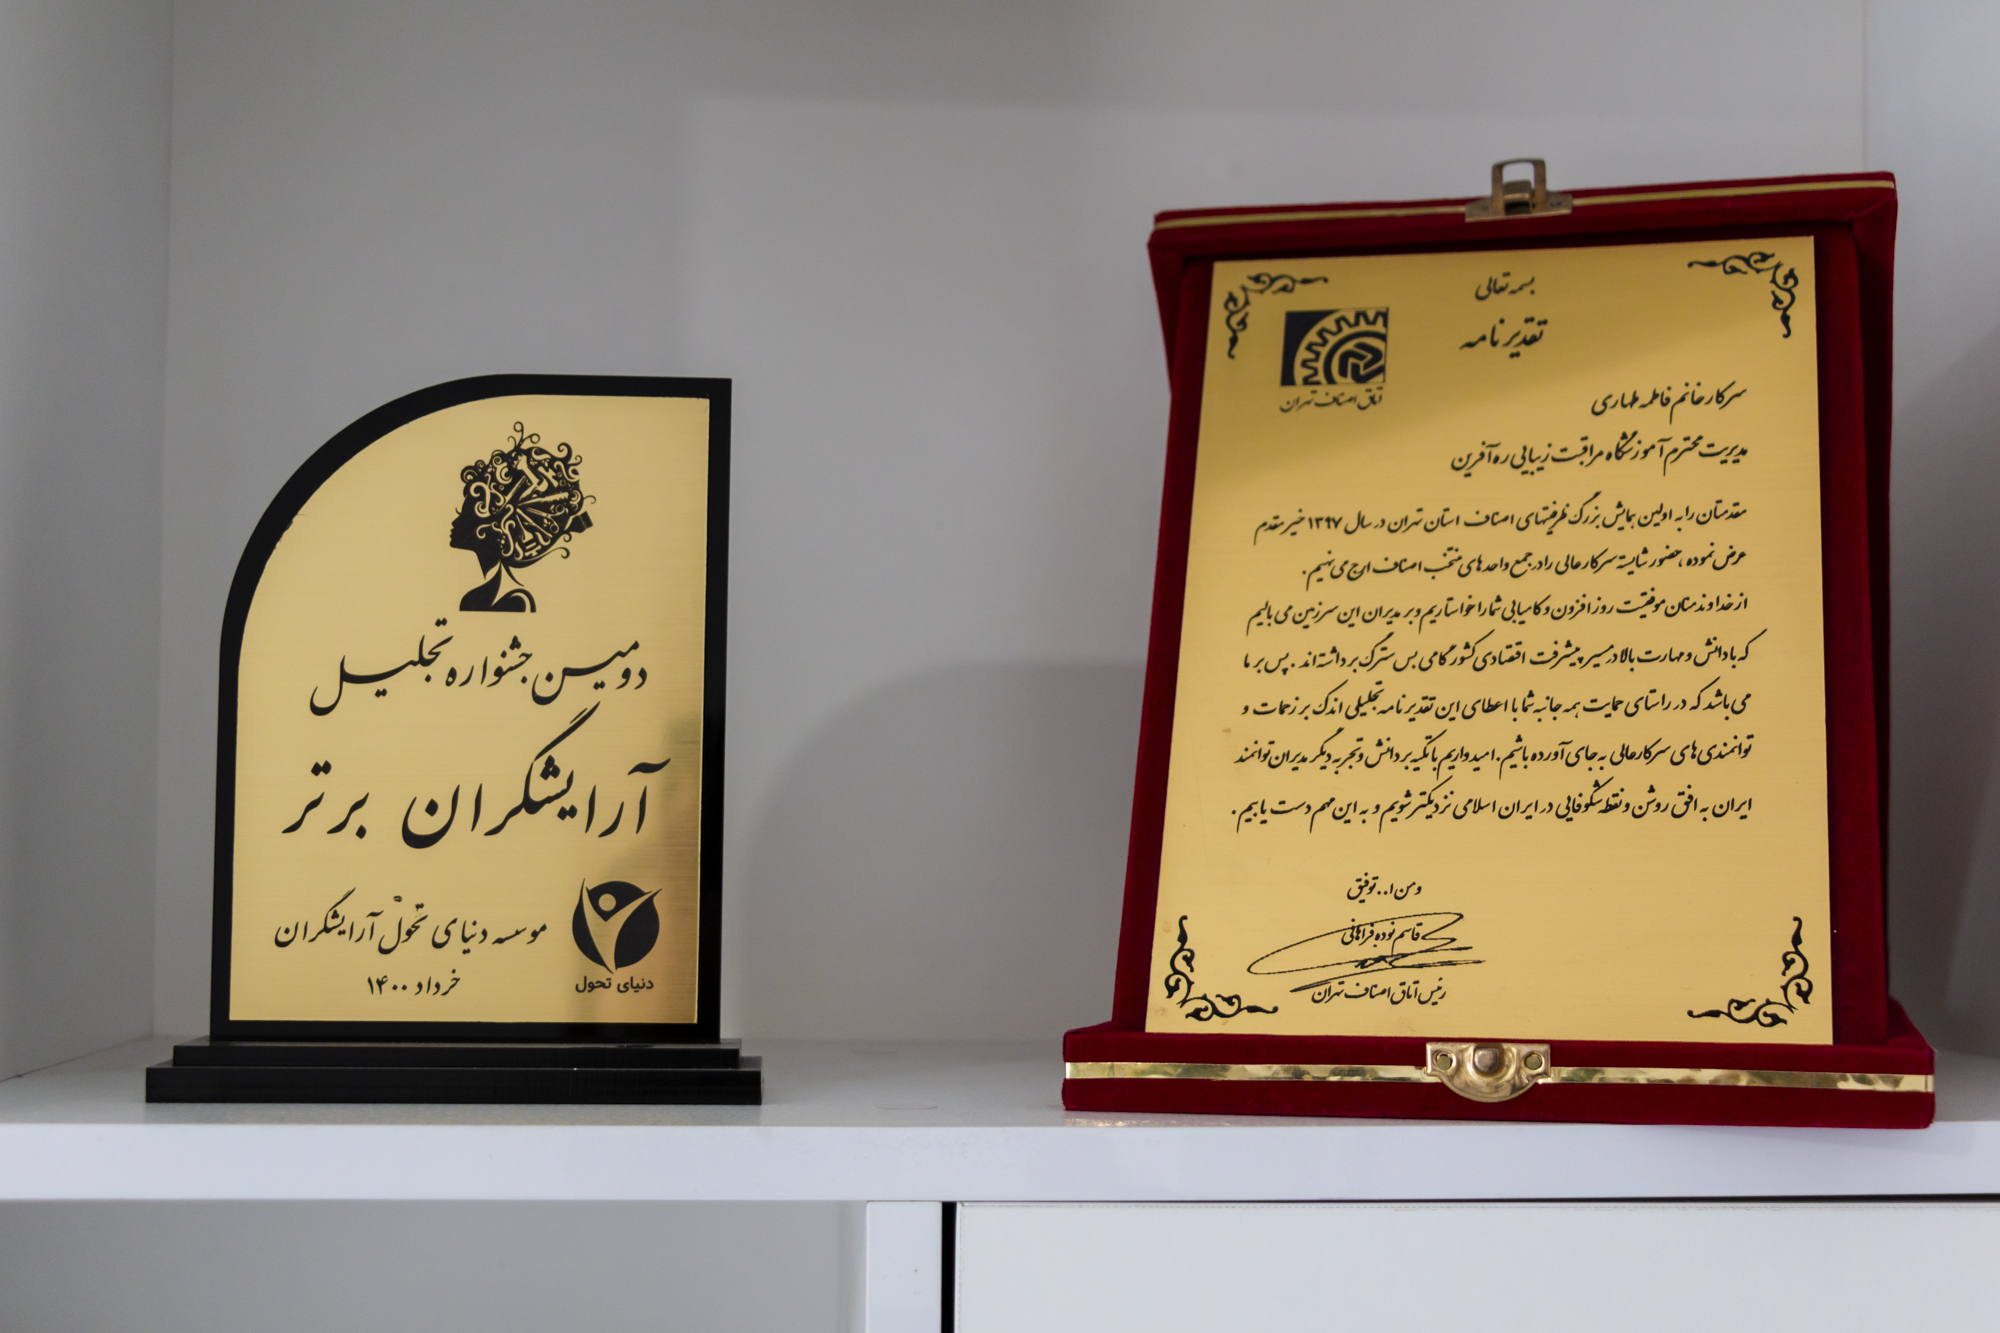 دومین جشنواره تجلیل
آرایشگران برتر
موسسه دنیای تحوّل آرایشگران
خرداد ۱۴۰۰
دنیای تحول
بسمه تعالی
تقدیرنامه
اتاق اصناف تهران
سرکار خانم فاطمه طهاری
مدیریت محترم آموزشگاه مراقبت زیبایی ره آفرین
مقدمتان را به اولین همایش بزرگ ظرفیتهای اصناف استان تهران در سال ۱۳۹۷ خیر مقدم
عرض نموده ، حضور شایسته سرکارعالی را در جمع واحدهای منتخب اصناف ارج می نهیم .
از خداوند منان موفقیت روز افزون و کامیابی شما را خواستاریم و بر مدیران این سرزمین می بالیم
که با دانش و مهارت بالا در مسیر پیشرفت اقتصادی کشور گامی بس سترگ برداشته اند . پس بر ما
می باشد که در راستای حمایت همه جانبه شما با اعطای این تقدیر نامه تجلیلی اندک بر زحمات و
توانمندی های سرکارعالی به جای آورده باشیم . امیدواریم با تکیه بر دانش و تجربه دیگر مدیران توانمند
ایران به افق روشن و نقطه شکوفایی در ایران اسلامی نزدیکتر شویم و به این مهم دست یابیم .
و من ا.. توفیق
قاسم نوده فراهانی
رئیس اتاق اصناف تهران